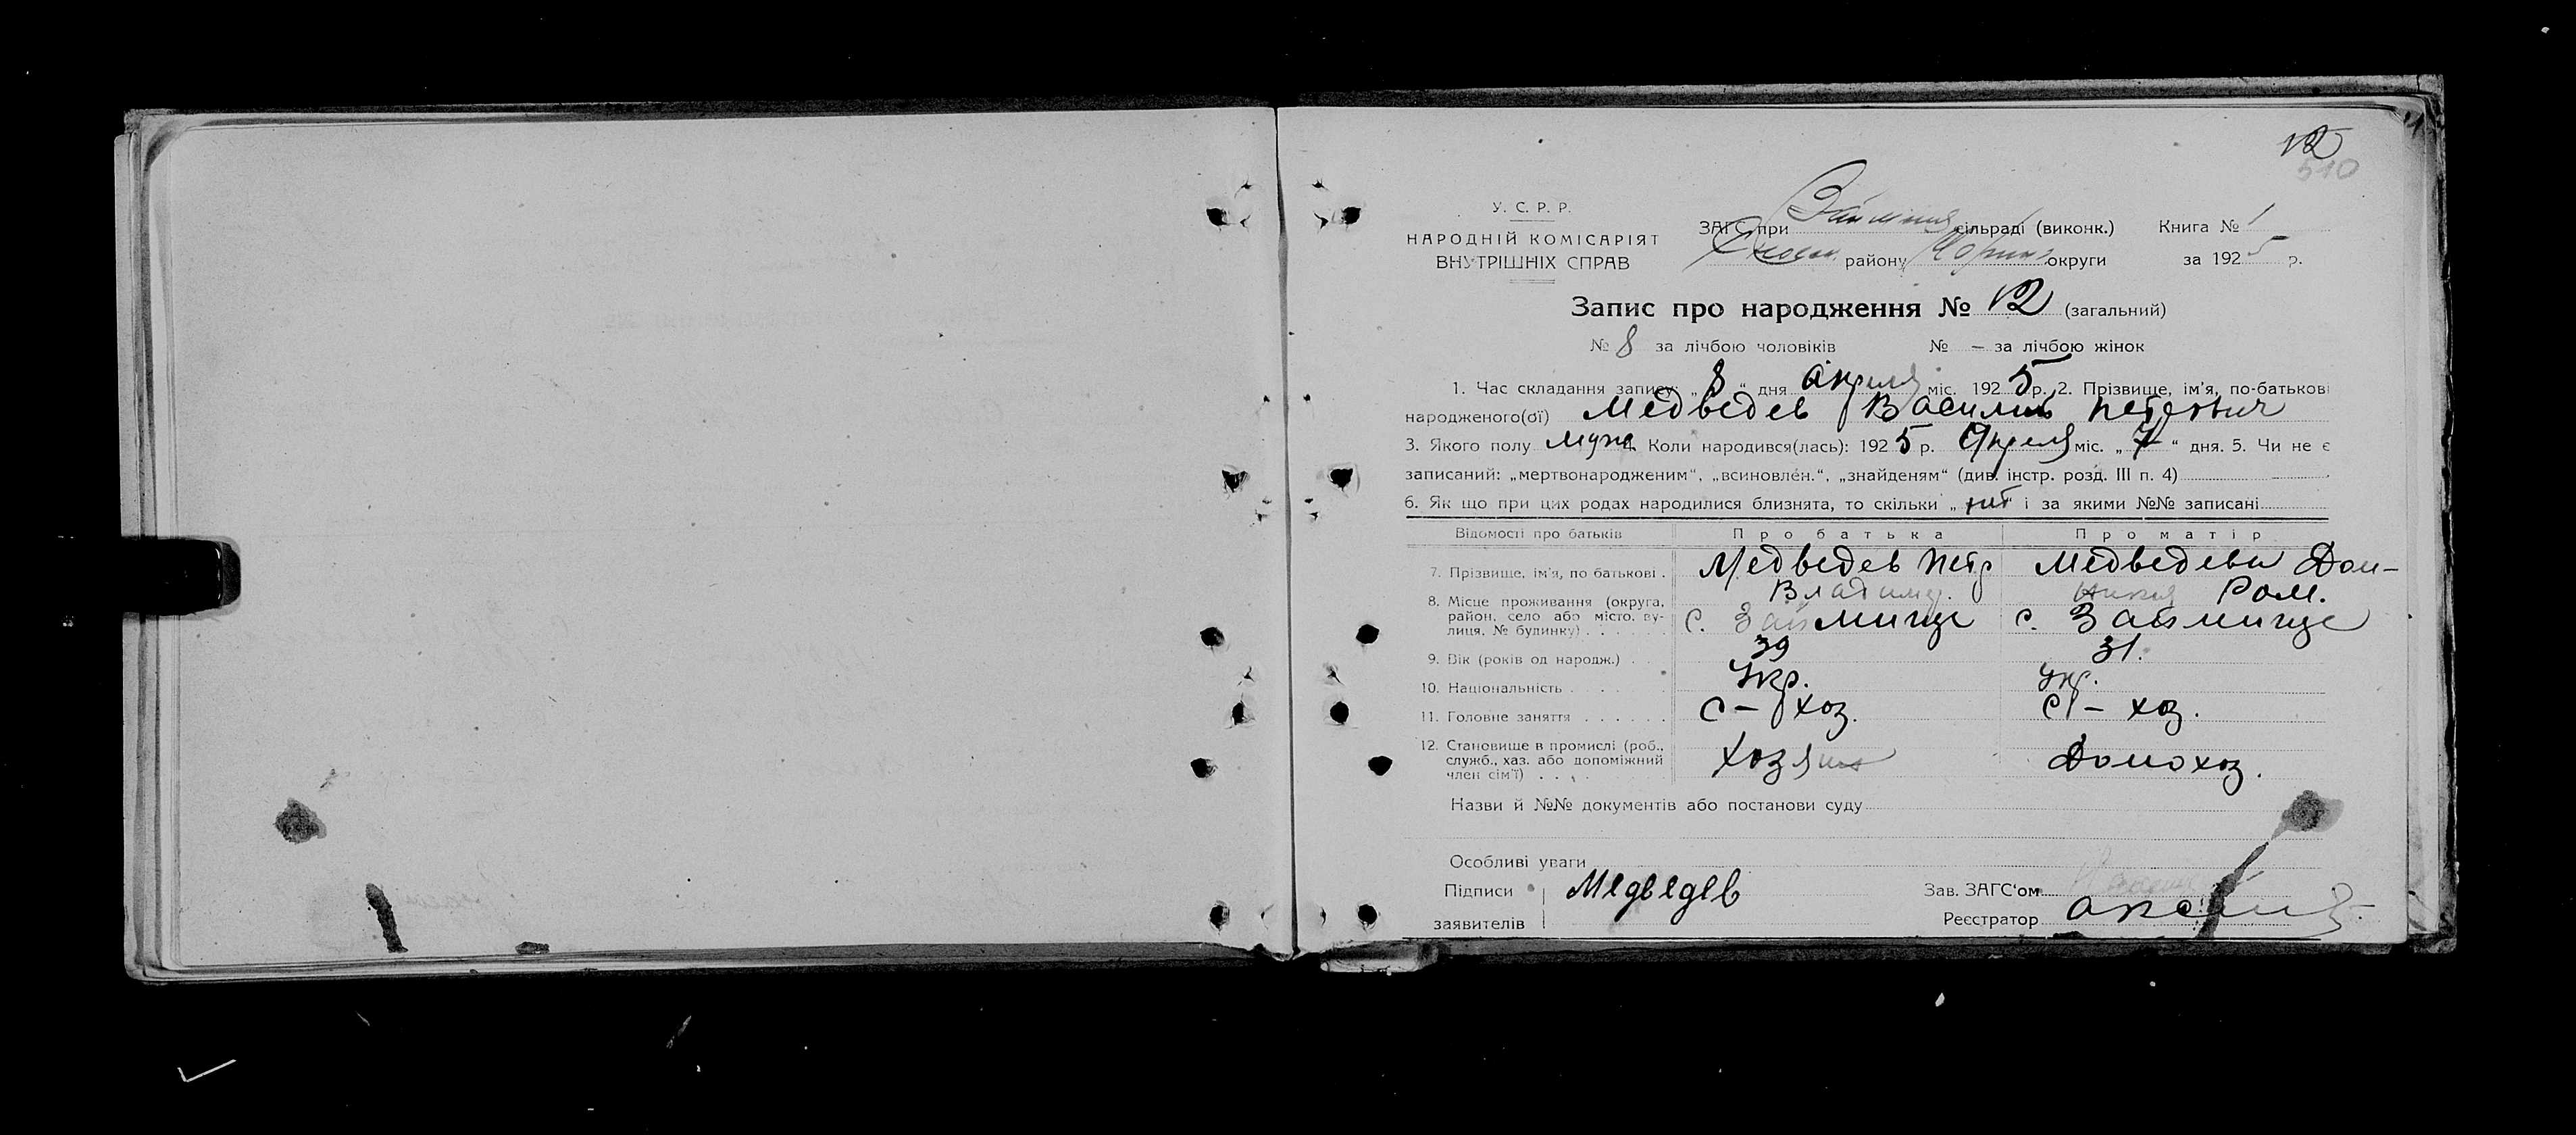 12
510
У. С. Р. Р.
НАРОДНІЙ КОМІСАРІЯТ
ВНУТРІШНІХ СПРАВ
ЗАГС при сільраді (виконк.) Книга № 1
району округи за 1925 р.
Запис про народження № 12 (загальний)
№ 8 за лічбою чоловіків № — за лічбою жінок
1. Час складання запису: „8“ дня Апреля міс. 1925 р. 2. Прізвище, ім'я, по-батькові
народженого(ої) Медведев Василий Петрович
3. Якого полу муж 4. Коли народився(лась): 1925 р. Апреля міс. „7“ дня. 5. Чи не є
записаний: „мертвонародженим“, „всиновлен.“, „знайденям“ (див. інстр. розд. III п. 4)
6. Як що при цих родах народилися близнята, то скільки „нет“ і за якими №№ записані
Відомості про батьків Про батька Про матір
7. Прізвище, ім'я, по батькові . Медведев Петр Владимир. Медведева Дом- Ром.
8. Місце проживання (округа, район, село або місто, вулиця, № будинку) . . . . . с. Займище с. Займище
9. Вік (років од народж.) . . 39 31.
10. Національність . . . . . Укр. Укр.
11. Головне заняття . . . . . . С-хоз. С-хоз.
12. Становище в промислі (роб., служб., хаз. або допоміжний член сім'ї) . . . . Хозяин Домохоз.
Назви й №№ документів або постанови суду
Особливі уваги
Підписи Медведев Зав. ЗАГС'ом
заявителів Реєстратор